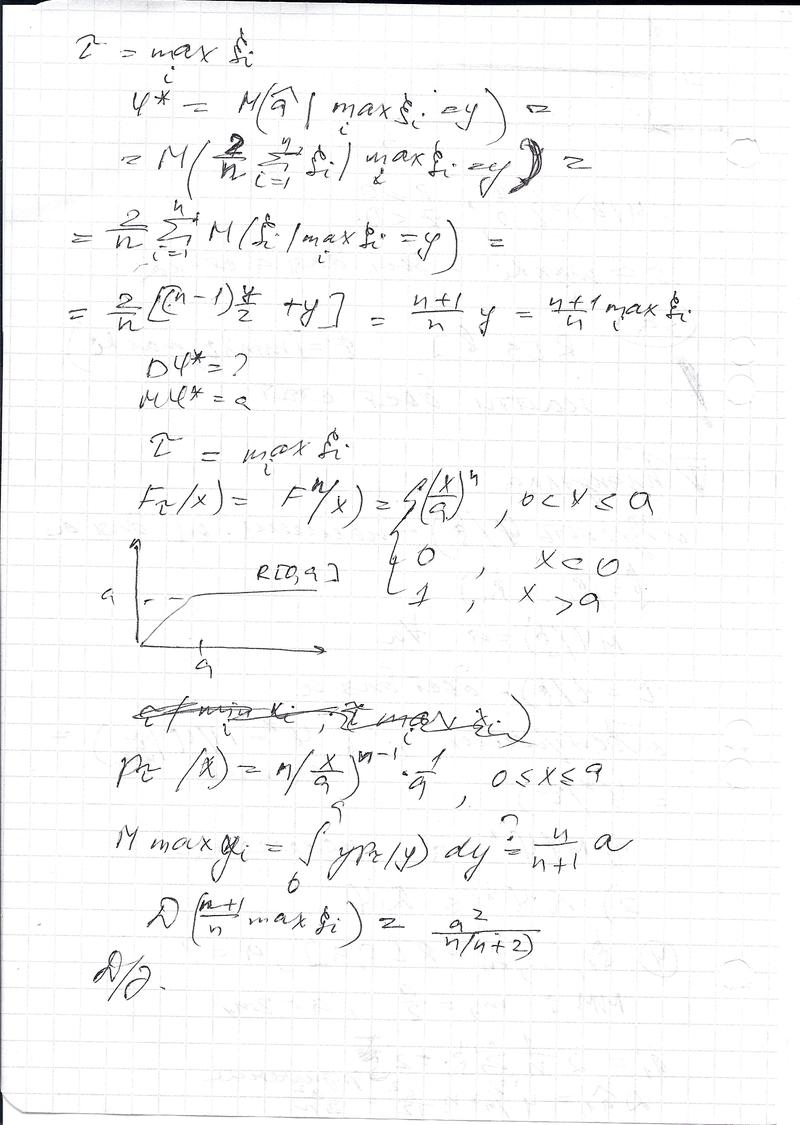 τ = max_i ξ_i
φ* = M(â | max_i ξ_i = y) =
= M( 2/n ∑_{i=1}^{n} ξ_i | max_i ξ_i = y ) =
= 2/n ∑_{i=1}^{n} M(ξ_i | max_i ξ_i = y) =
= 2/n [(n-1) y/2 + y] = n+1/n y = n+1/n max_i ξ_i
Dφ* = ?
Mφ* = a
τ = max_i ξ_i
F_τ(x) = F^n(x) = { (x/a)^n , 0 < x ≤ a
0 , x < 0
R[0,a]
a
1 , x > a
a
p_τ(x) = n(x/a)^{n-1} · 1/a , 0 ≤ x ≤ a
M max y_i = ∫_0^a y p_τ(y) dy =? n/n+1 a
D( n+1/n max ξ_i ) = a²/n(n+2)
Д/з.